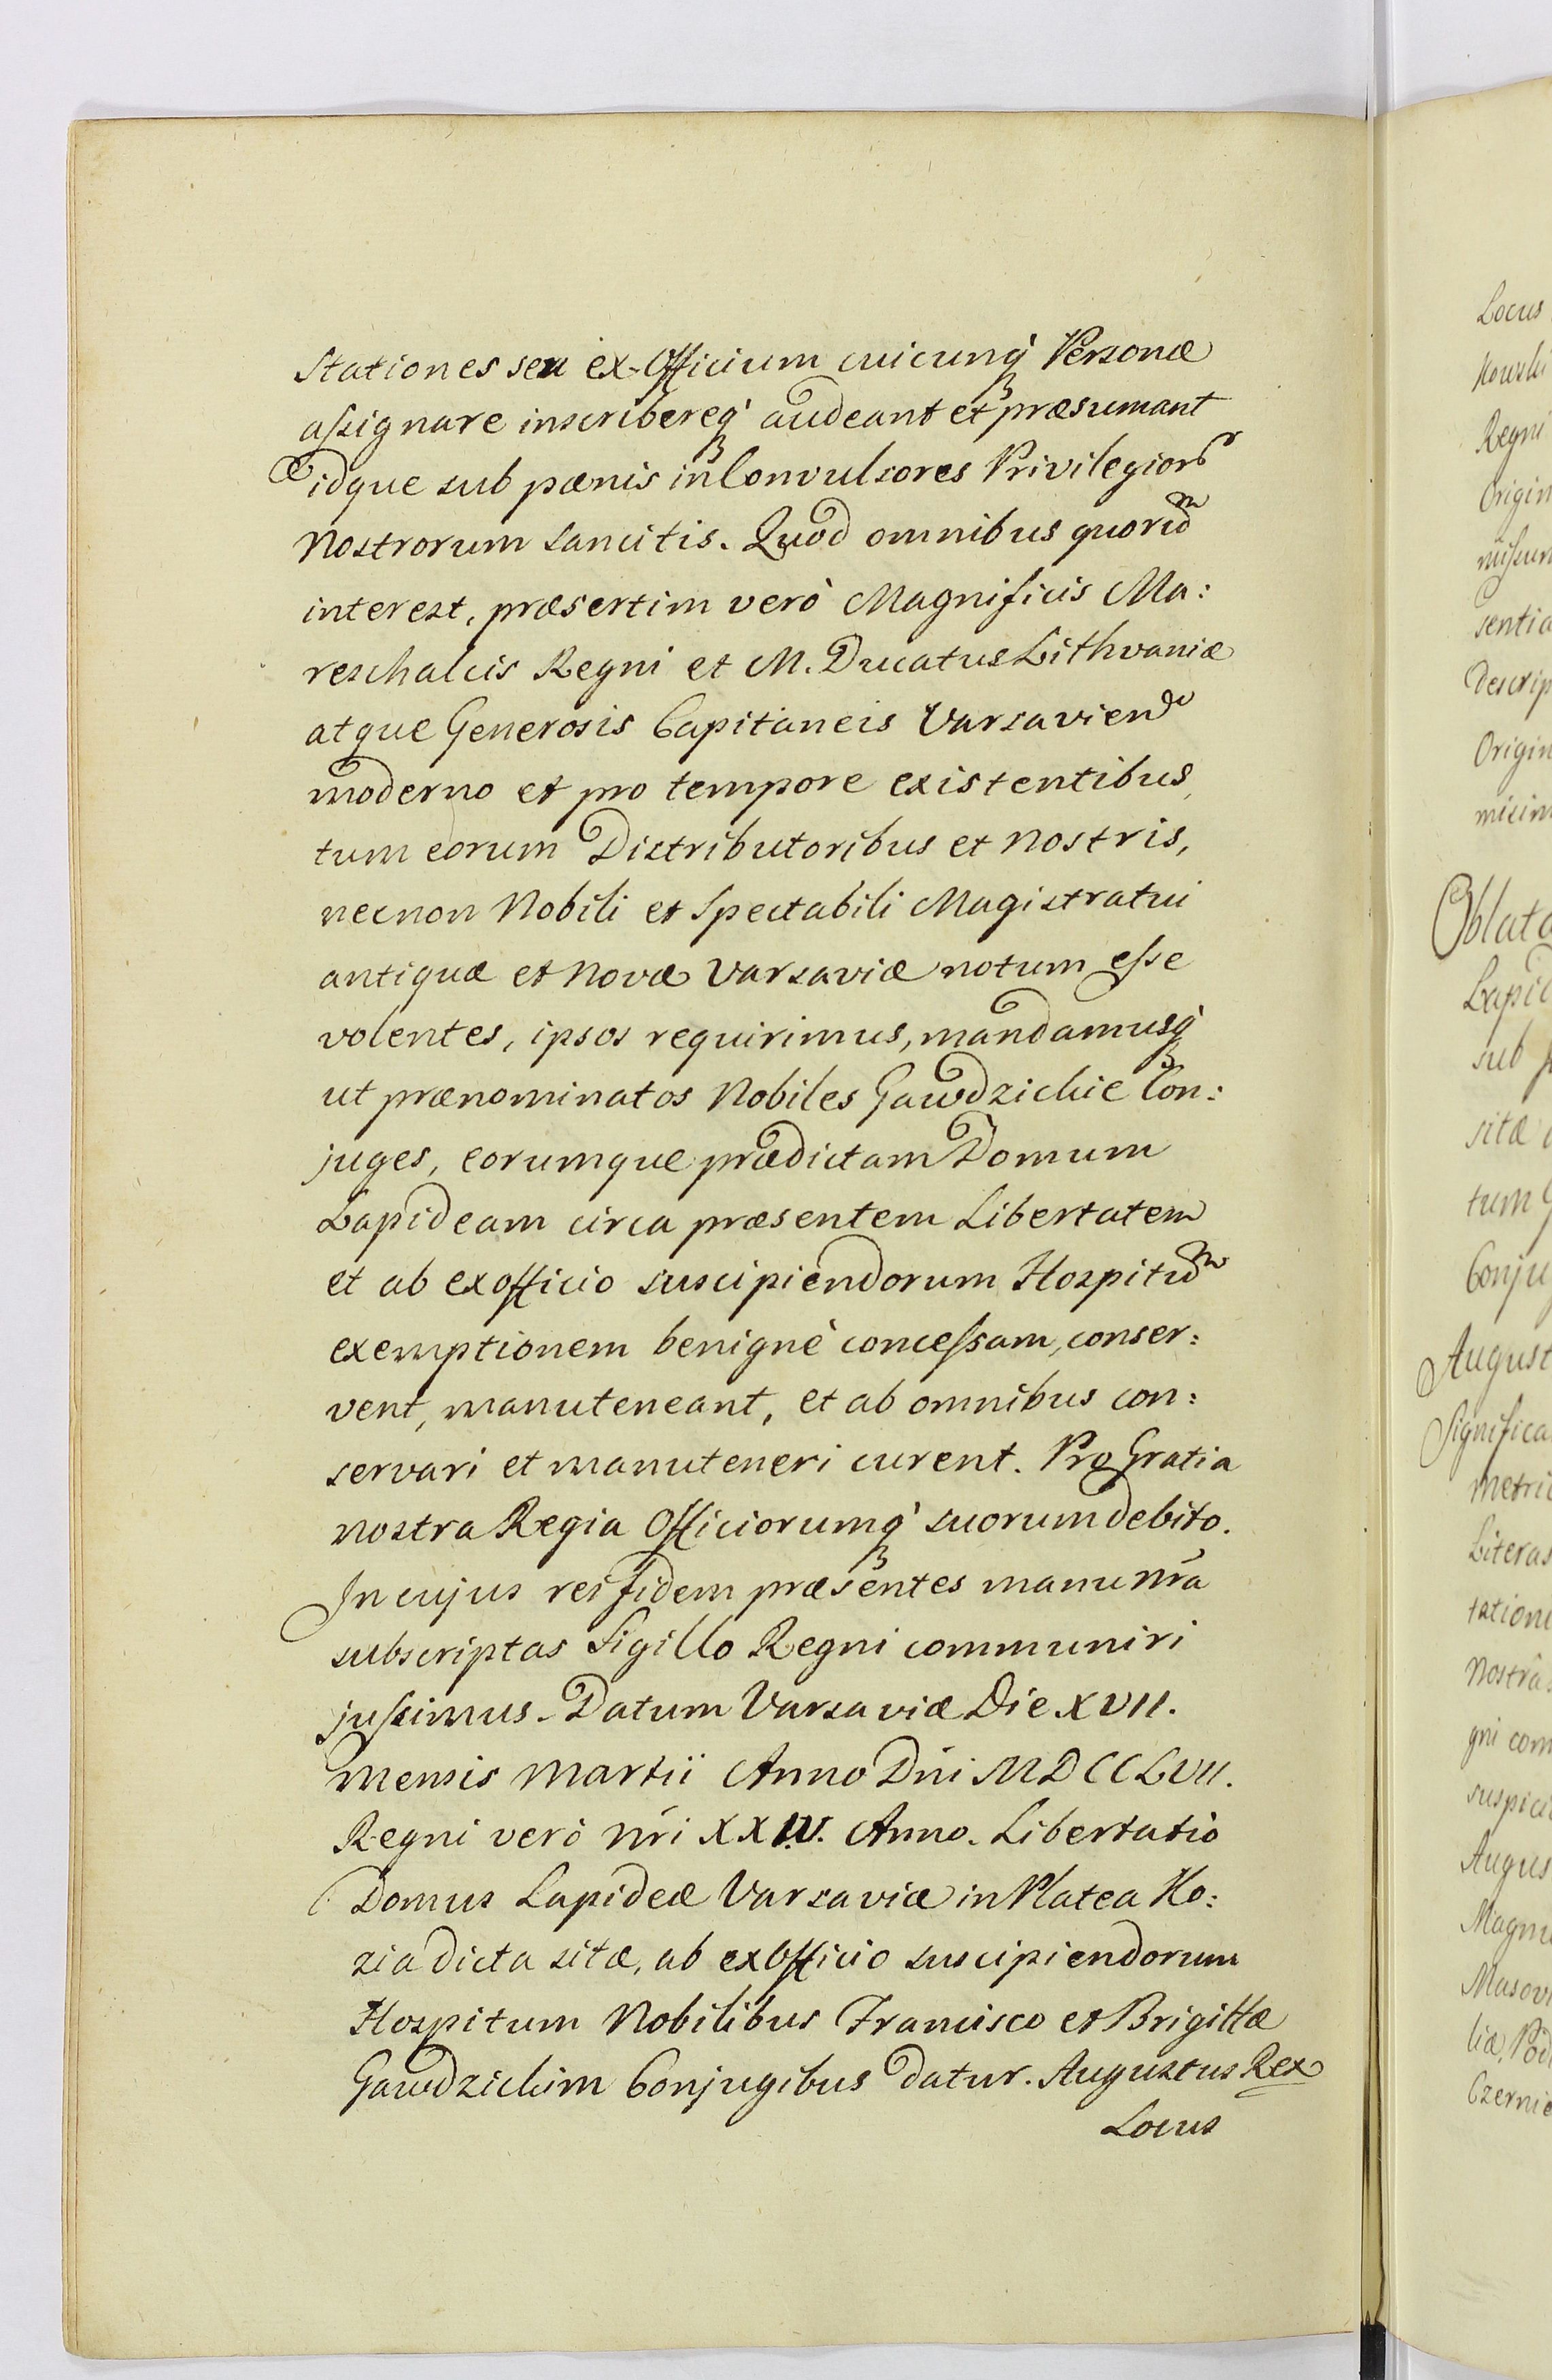 Stationes seu ex-Officium cuicunq́ꝫ Personæ
aſsignare inscribereq́ꝫ audeant et præsumant
idque sub pænis in Convulsores Privilegior
Nostrorum sancitis. Quod omnibus quorũ
interest, præsertim verò Magnificis Ma:
reschalcis Regni et M. Ducatus Lithvaniæ
atque Generosis Capitaneis Varsavien
moderno et pro tempore existentibus,
tum eorum Distributoribus et Nostris,
necnon Nobili et Spectabili Magistratui
antiquæ et Novæ Varsaviæ notum eſse
volentes, ipsos requirimus, mandamusq́ꝫ
ut prænominatos Nobiles Gawdzickie Con:
juges, eorumque prædictam Domum
Lapideam circa præsentem Libertatem
et ab exofficio suscipiendorum Hospitũ
exemptionem benignè conceſsam, conser:
vent, manuteneant, et ab omnibus con:
servari et manuteneri curent. Pro Gratia
nostra Regia Officiorumq́ꝫ suorum debito.
In cujus rei fidem præsentes manu nr̃a
subscriptas Sigillo Regni communiri
juſsimus. Datum Varsaviæ Die XVII.
Mensis Martii Anno Dñi MDCCLVII.
Regni verò nr̃i XXIV. Anno. Libertatio
Domus Lapideæ Varsaviæ in Platea Ko:
zia dicta sitæ, ab exOfficio suscipiendorum
Hospitum Nobilibus Francisco et Brigittæ
Gawdzickim Conjugibus datur. Augustus Rex
Locus
Locus
Regni
Origin
sentia
Descrip
Origin
Oblata
Lapid
sub
sitæ
tum
Conju
August
Significa
Metric
Literas
tatione
Nostra
gni com
suspici
Augus
Magnu
Masov
liæ, Pod
Czernie